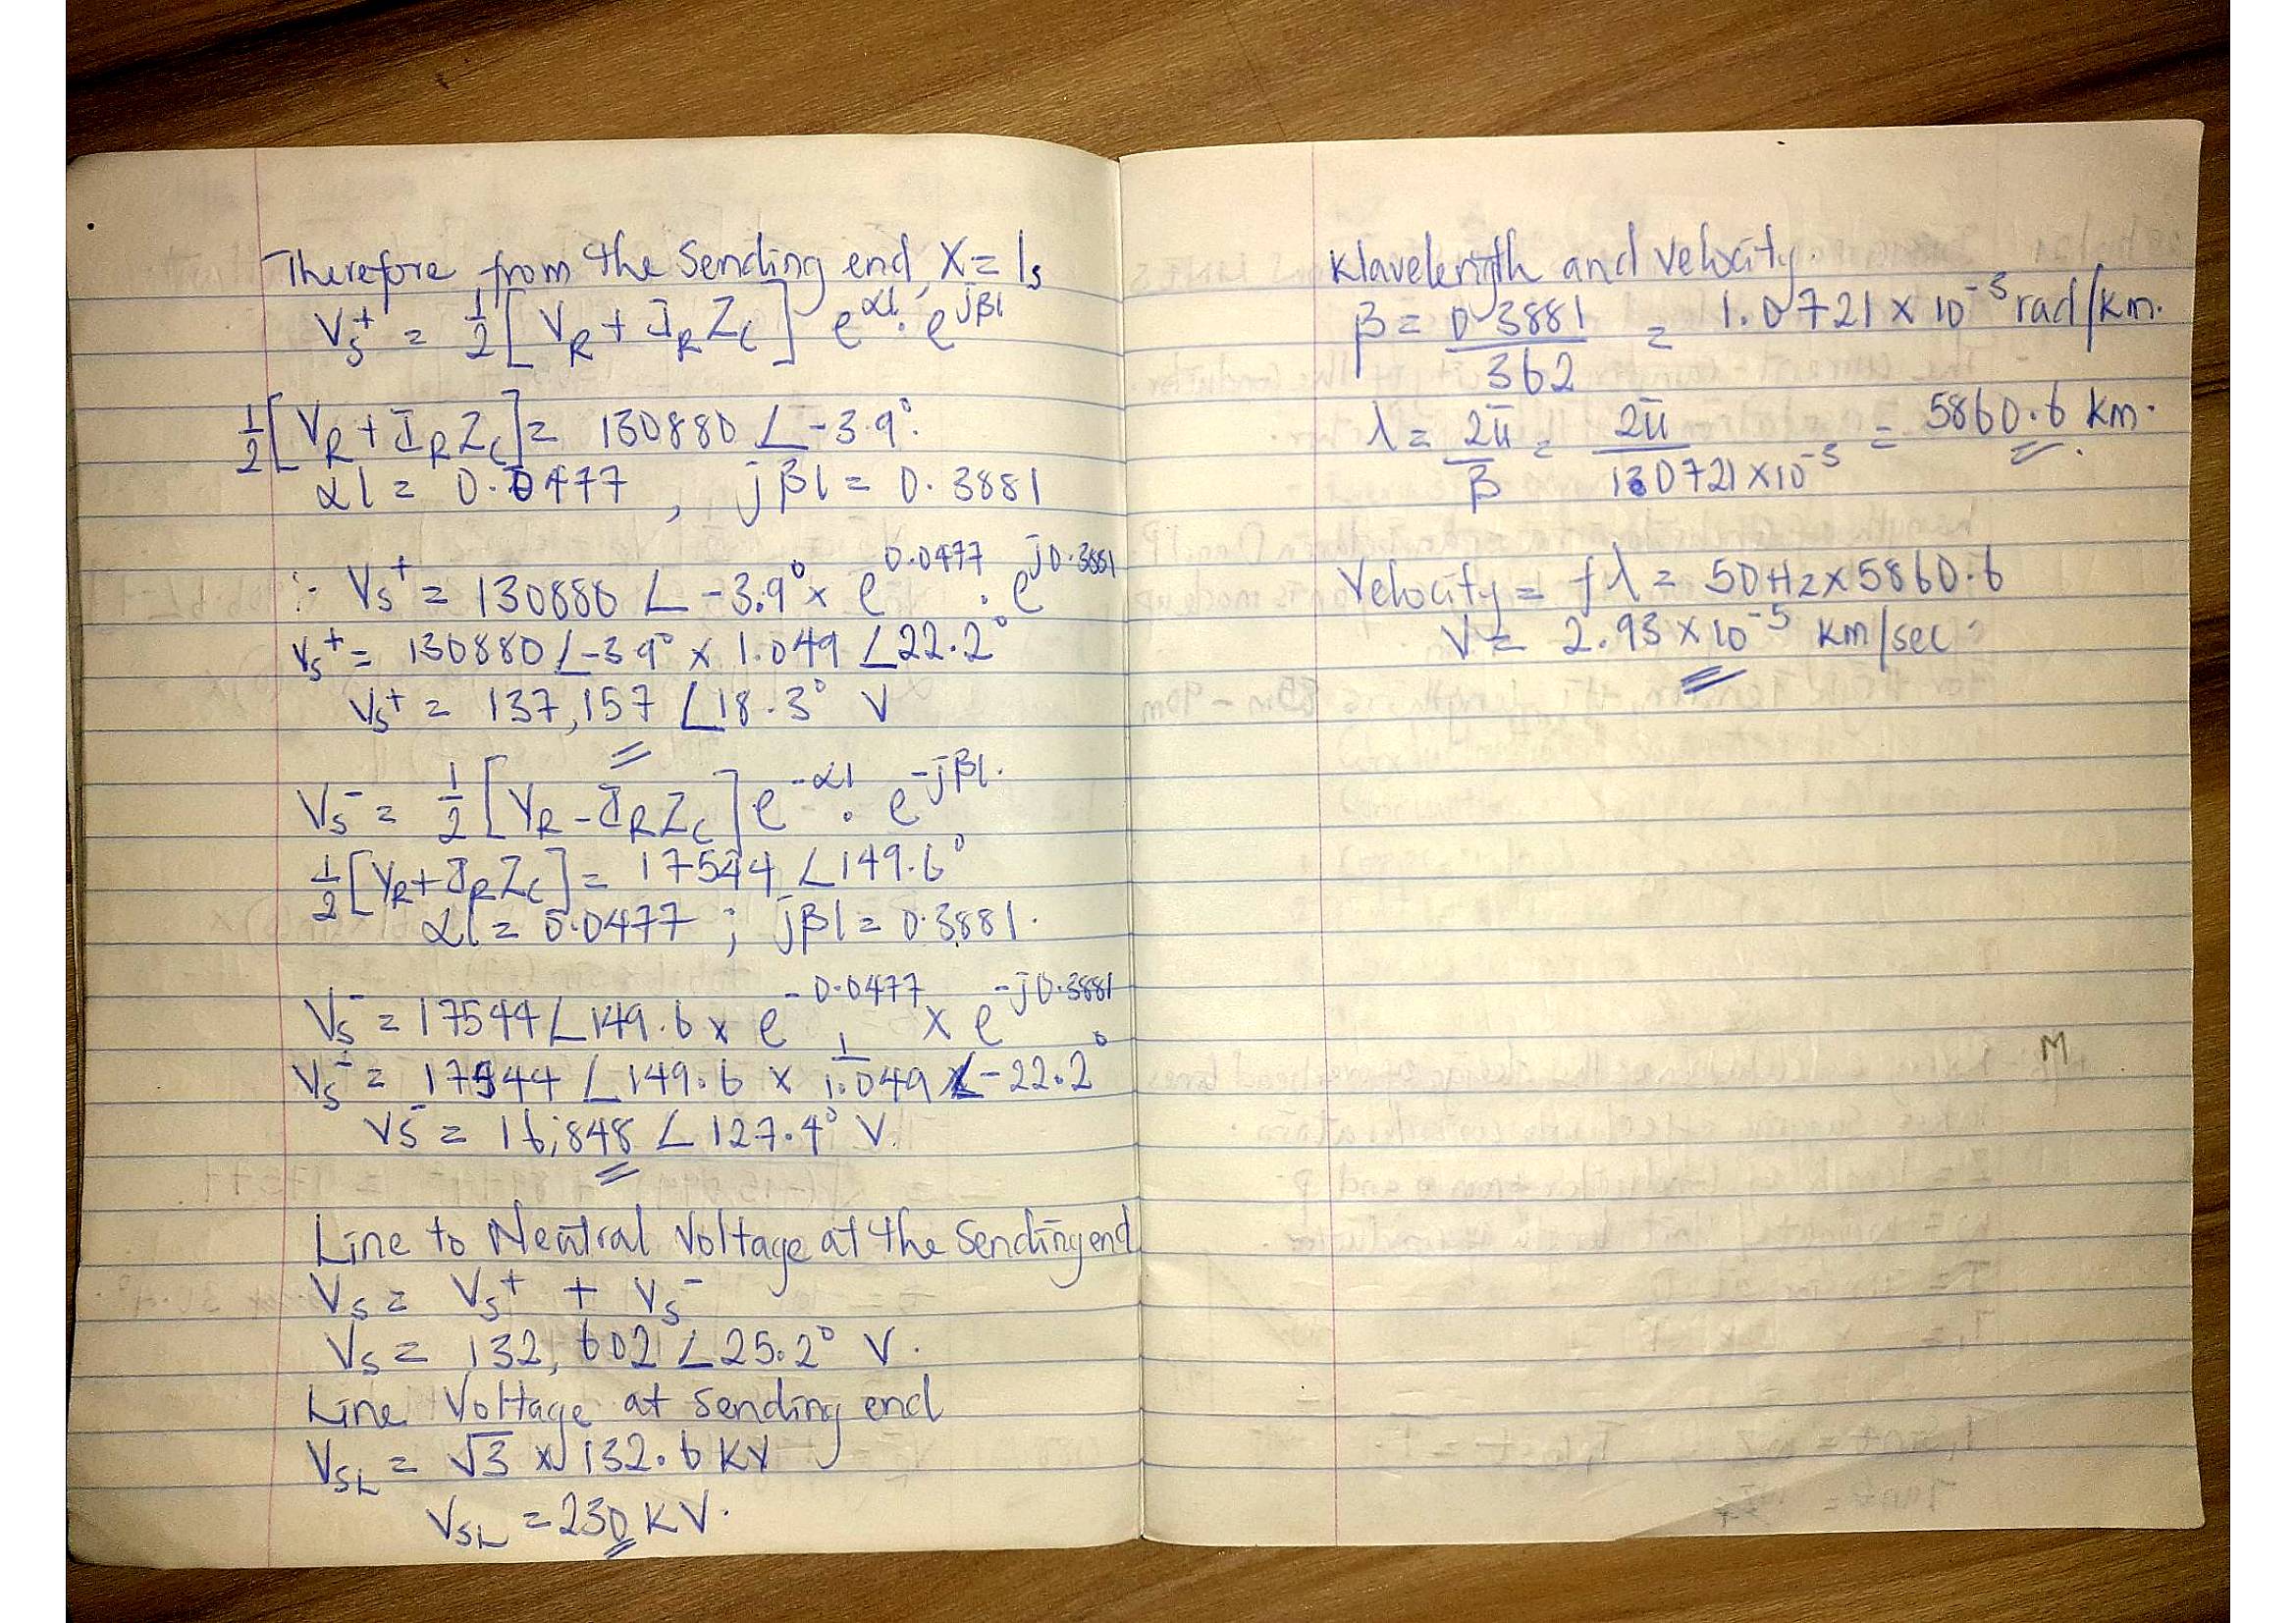 Therefore, from the Sending end, X = ls
Vs⁺ = ½[VR + IRZc] e^αl . e^jβl
½[VR + IRZc] = 130880 ∠-3.9°.
αl = 0.0477 , jβl = 0.3881
∴ Vs⁺ = 130880 ∠-3.9° × e^0.0477 . e^j0.3881
Vs⁺ = 130880 ∠-3.9° × 1.049 ∠22.2°
Vs⁺ = 137,157 ∠18.3° V
Vs⁻ = ½[VR - IRZc] e^-αl . e^-jβl.
½[VR + IRZc] = 17544 ∠149.6°
αl = 0.0477 ; jβl = 0.3881.
Vs⁻ = 17544 ∠149.6 × e^-0.0477 × e^-j0.3881
Vs⁻ = 17544 ∠149.6 × 1/1.049 ∠-22.2°
Vs⁻ = 16,848 ∠127.4° V.
Line to Neutral Voltage at the Sending end
Vs = Vs⁺ + Vs⁻
Vs = 132,602 ∠25.2° V.
Line Voltage at sending end
VSL = √3 × 132.6 KV
VSL = 230 KV.
Wavelength and Velocity.
β = 0.3881/362 = 1.0721 × 10⁻³ rad/km.
λ = 2π/β = 2π/1.0721×10⁻³ = 5860.6 km.
Velocity = fλ = 50Hz × 5860.6
V = 2.93 × 10⁻⁵ km/sec
M